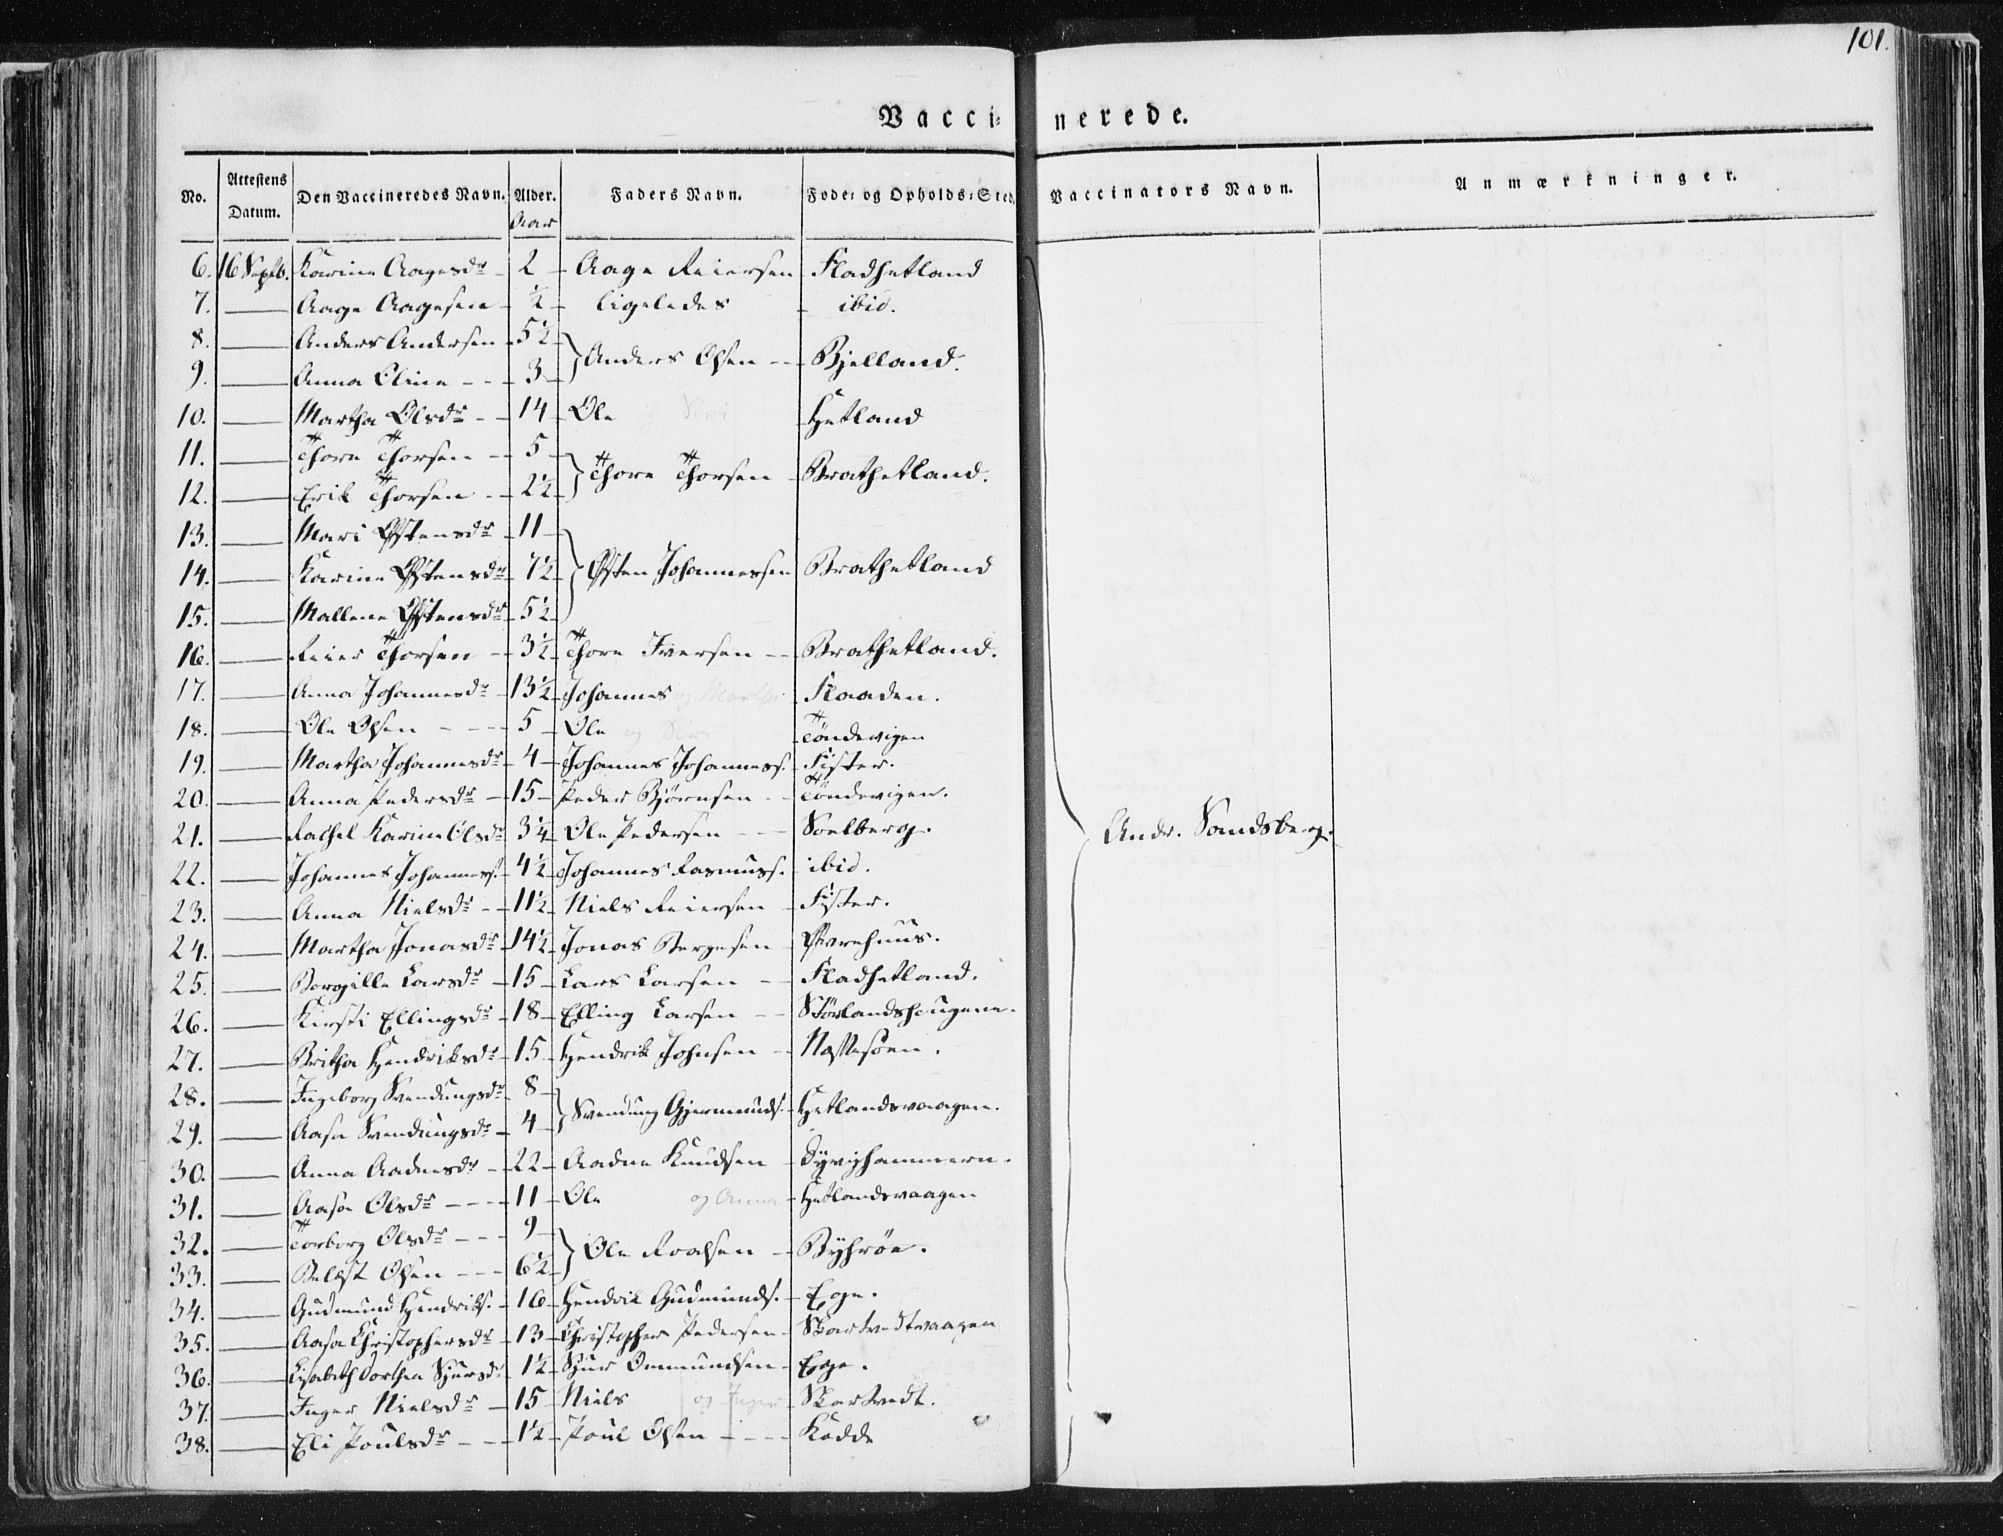 101.
Vaccinerede.
No. Attestens Datum. Den Vaccineredes Navn. Alder. Aar Faders Navn. Føde- og Opholds-Sted. Vaccinators Navn. Anmærkninger.
6. 16 Septb. Karine Aagesdr 2 Aage Reiersen Fladhetland
7. — Aage Aagesen ½ ligeledes ibid.
8. — Anders Andersen 5½
Anders Olsen Bjelland.
9. — Anna Oline 3
10. — Martha Olsdr 14 Ole og Siri Hetland
11. — Thore Thorsen 5
Thore Thorsen Brathetland.
12. — Erik Thorsen 2½
13. — Mari Østensdr 11
14. — Karine Østensdr 7½ Østen Johannessen Brathetland
15. — Mallene Østensdr 5½
16. — Reier Thorsen 3½ Thore Iversen Brathetland.
17. — Anna Johannesdr 13½ Johannes og Martha Flaaden.
18. — Ole Olsen 5 Ole og Siri Töndevigen
19. — Martha Johannesdr 4 Johannes Johanness. Fister.
20. — Anna Pedersdr 15 Peder Bjørnsen Töndevigen.
21. — Rachel Karine Olsdr 3¼ Ole Pedersen Soelberg.
22. — Johannes Johanness. 4½ Johannes Rasmuss. ibid.
23. — Anna Nielsdr 11½ Niels Reiersen Fister.
24. — Martha Jonasdr 14½ Jonas Bergesen
25. — Borgille Larsdr 15 Lars Larsen Fladhetland.
26. — Kirsti Ellingsdr 18 Elling Larsen
27. — Britha Hendriksdr 15 Hendrik Johnsen
28. — Ingeborg Svendungsdr 8
Svendung Gjermunds. Hetlandsvaagen.
29. — Aasa Svendungsdr 4
30. — Anna Aadnesdr 22 Aadne Knudsen Dyvighammeren.
31. — Aasa Olsdr 11 Ole og Anna Hetlandsvaagen
32. — Torborg Olsdr 9
Ole Roalsen
33. — Olsen 6½
34. — Gudmund Hendriks. 16 Hendrik Gudmunds. Ege.
35. — Aasa Christophersdr 13 Christopher Pedersen Skartvedtvaagen
36. — Lisabeth Dorthea Sjursdr 1½ Sjur Ommundsen Ege.
37. — Inger Nielsdr 15 Niels og Inger Skartvedt.
38. — Eli Poulsdr 1½ Poul Olsen Kodde
Andr. Sandsberg.